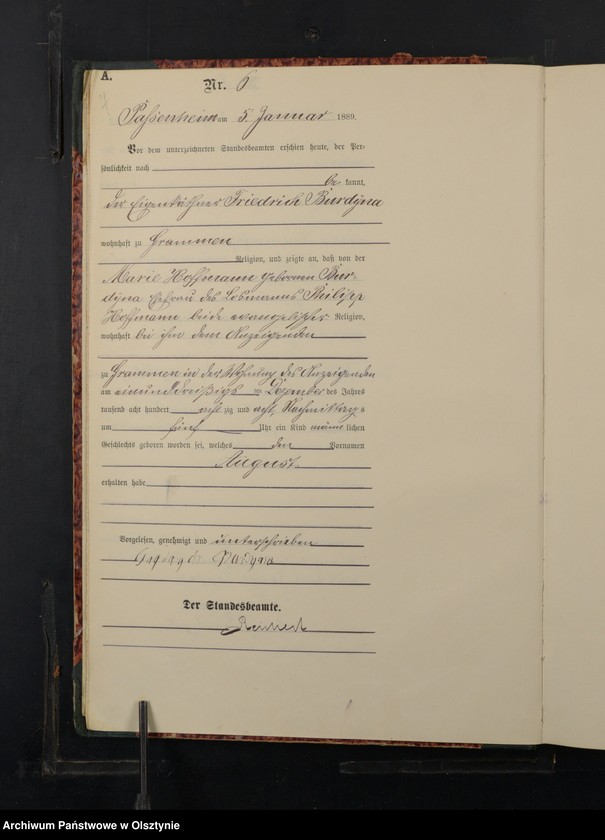 A.
Nr. 6
Passenheim am 5. Januar 1889.
Vor dem unterzeichneten Standesbeamten erschien heute, der Per-
sönlichkeit nach
be kannt,
der Eigenkäthner Friedrich Burdyna
wohnhaft zu Grammen
Religion, und zeigte an, daß von der
Marie Hoffmann geborenen Bur-
dyna Ehefrau des Losmanns Philipp
Hoffmann beide evangelischer Religion,
wohnhaft bei ihm dem Anzeigenden
zu Grammen in der Wohnung des Anzeigenden
am einunddreißigs ten Dezember des Jahres
tausend acht hundert acht zig und acht, Nachmittags
um fünf Uhr ein Kind männ lichen
Geschlechts geboren worden sei, welches den Vornamen
August
erhalten habe
Vorgelesen, genehmigt und unterschrieben
Der Standesbeamte.
Archiwum Państwowe w Olsztynie